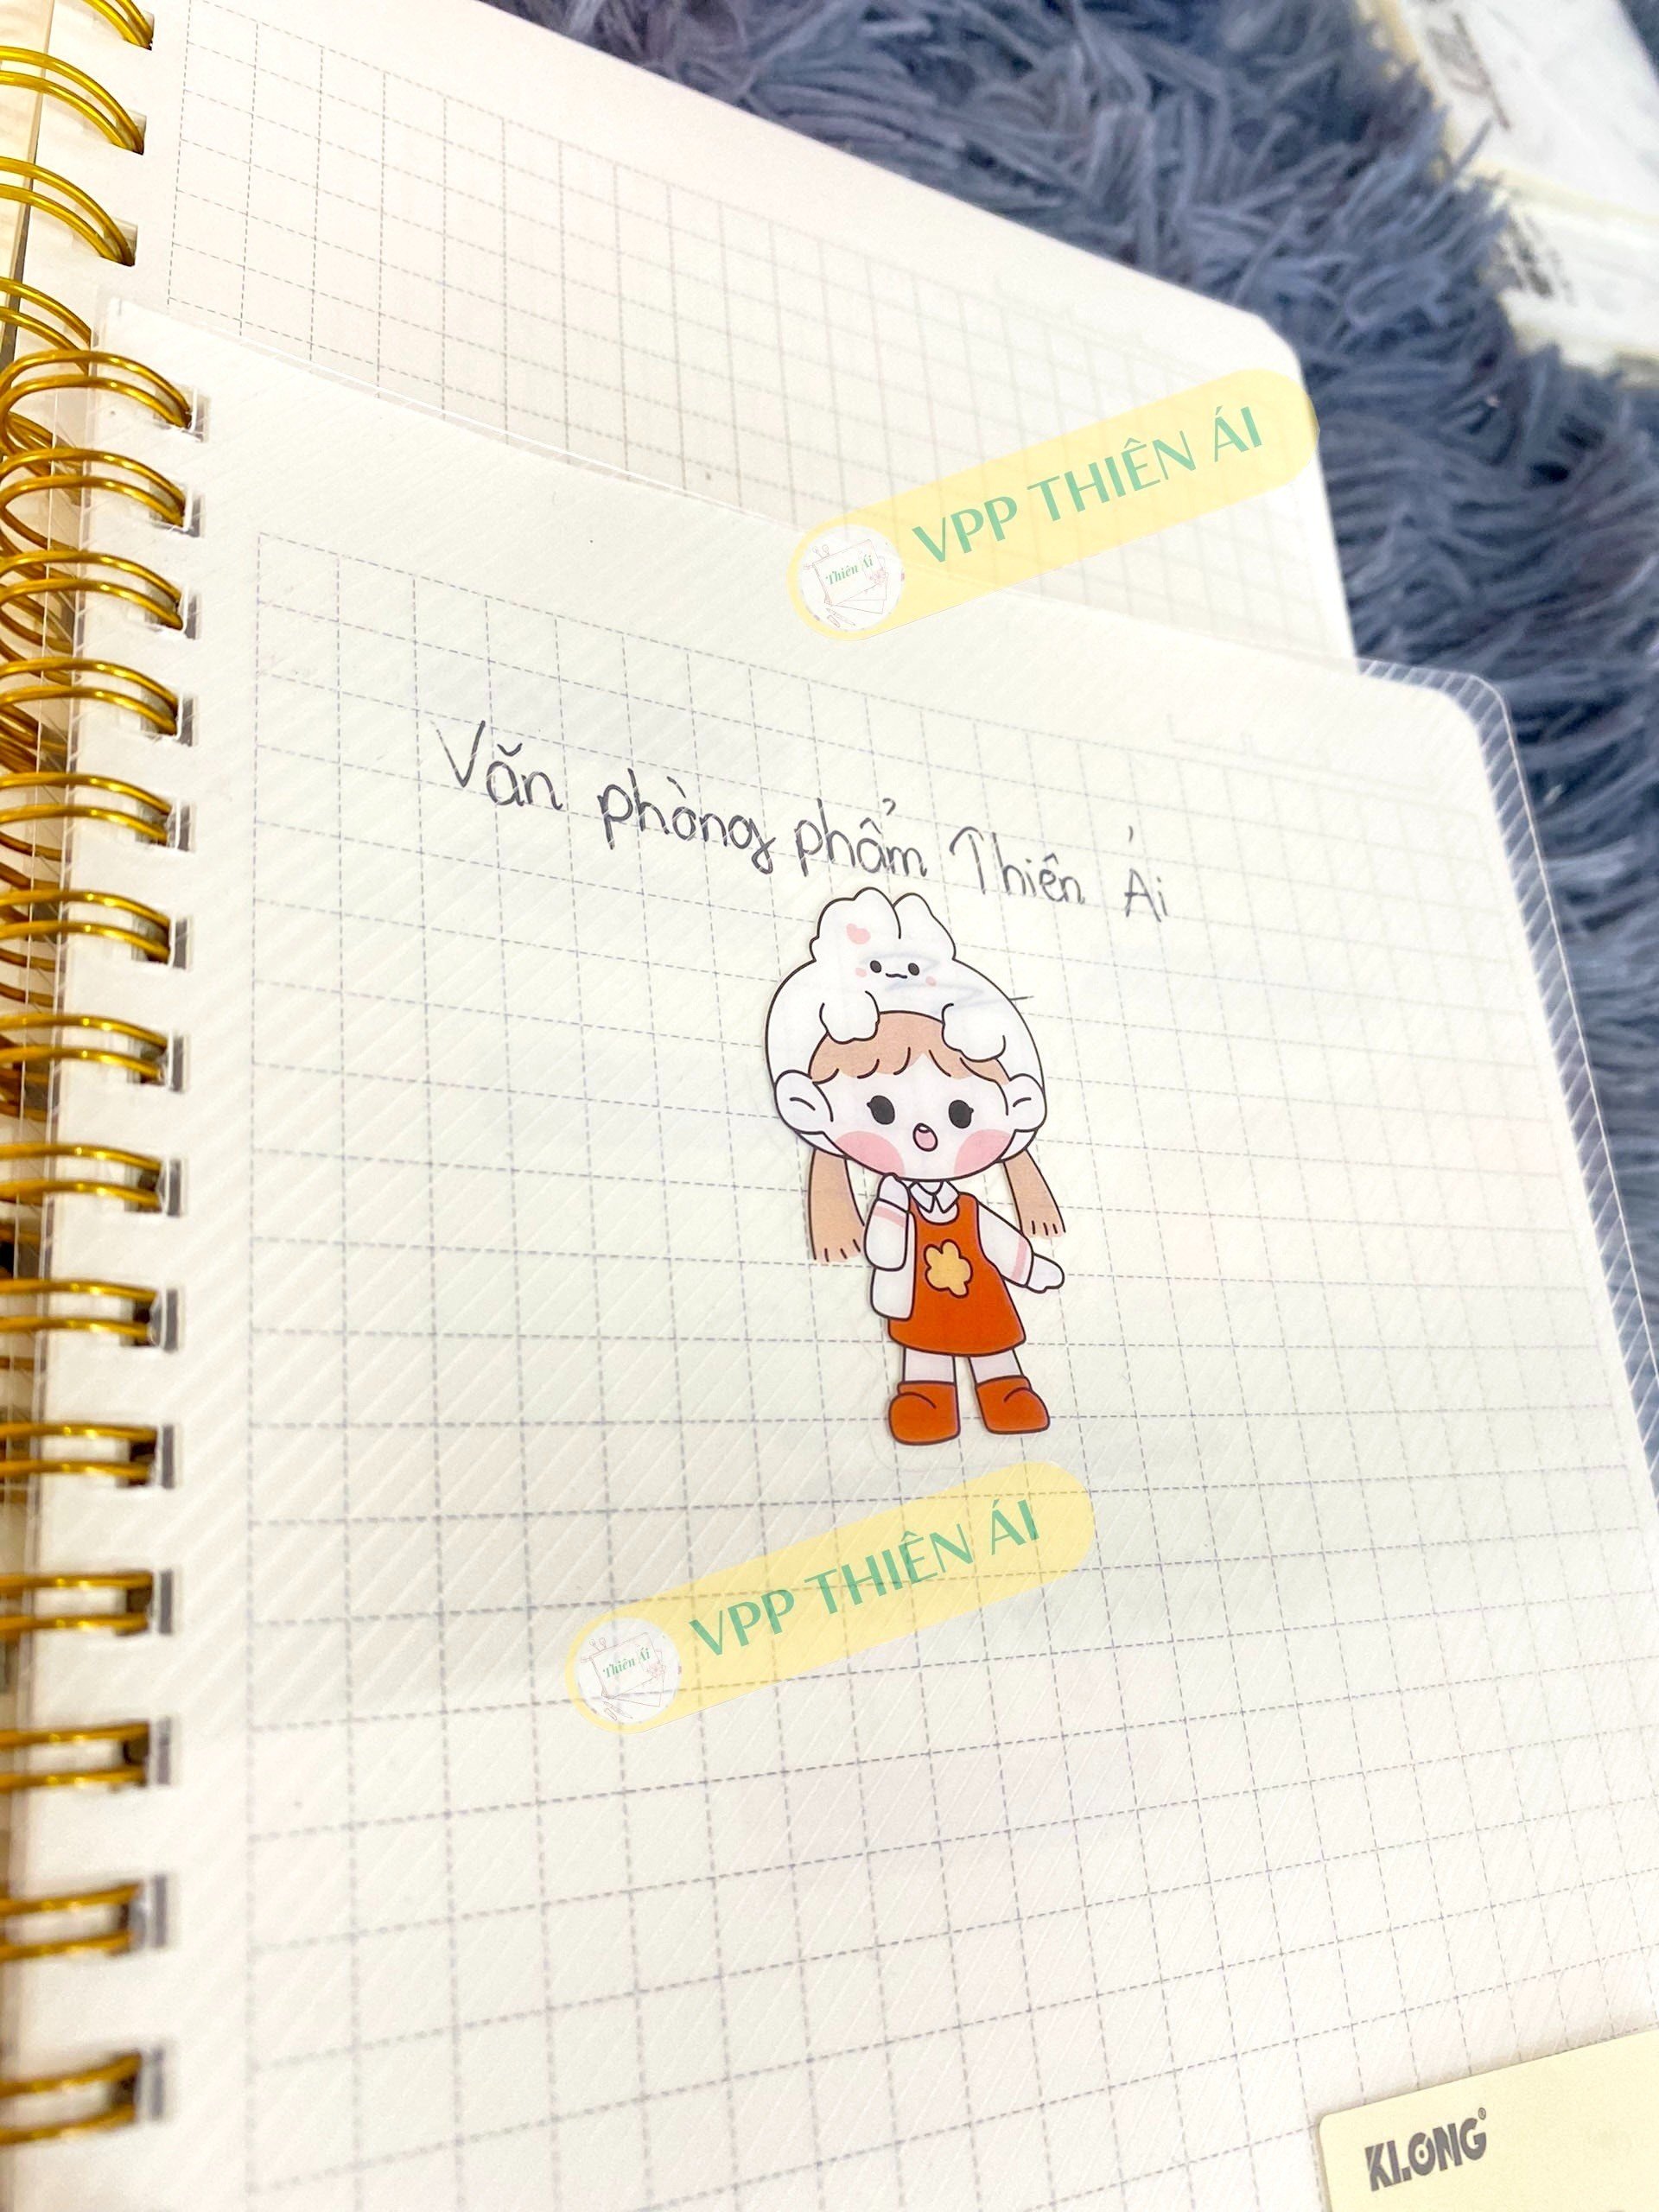 VPP THIÊN ÁI
Thiên Ái
Văn phòng phẩm Thiên Ái
VPP THIÊN ÁI
Thiên Ái
KLONG®